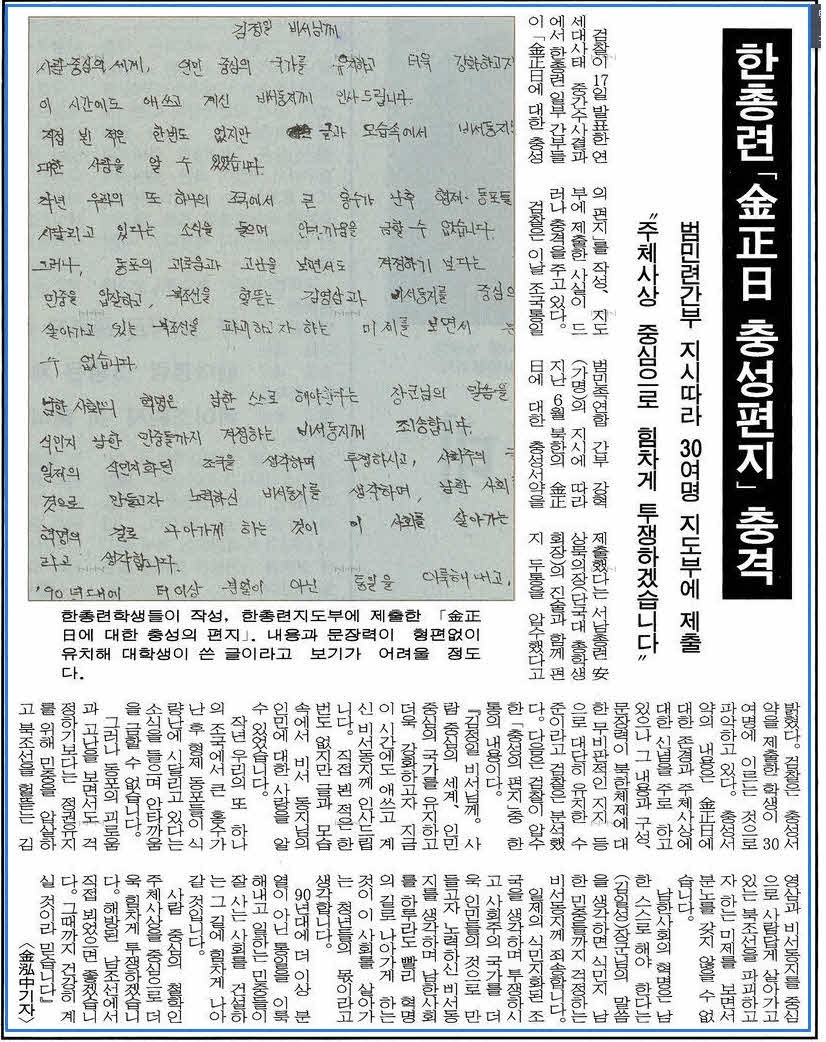 한총련「金正日 충성편지」충격
범민련간부 지시따라 30여명 지도부에 제출
"주체사상 중심으로 힘차게 투쟁하겠습니다"
검찰이 17일 발표한 연
세대사태 중간수사결과
에서 한총련 일부 간부들
이 「金正日에 대한 충성
의 편지」를 작성, 지도
부에 제출한 사실이 드
러나 충격을 주고있다.
검찰은 이날 조국통일
범민족연합 간부 강혁
(가명)의 지시에 따라
지난 6월 북한의 金正
日에 대한 충성서약을
제출했다는 서남총련 安
상묵의장(단국대 총학생
회장)의 진술과 함께 편
지 두통을 압수했다고
김정일 비서님께
사람 중심의 세계, 인민 중심의 국가를 유지하고 더욱 강화하고자
이 시간에도 애쓰고 계신 비서동지께 인사드립니다.
직접 뵌 적은 한번도 없지만 글과 모습속에서 비서동지
대한 사랑을 알 수 있었습니다.
작년 우리의 또 하나의 조국에서 큰 홍수가 난후 형제·동포들
시달리고 있다는 소식을 들으며 안타까움을 금할 수 없습니다.
그러나, 동포의 괴로움과 고난을 보면서도 걱정하기 보다는
민중을 압살하고, 북조선을 헐뜯는 김영삼과 비서동지를 중심으
살아가고 있는 북조선을 파괴하고자 하는 미제를 보면서 는
수 없습니다.
남한 사회의 혁명은 남한 스스로 해야한다는 장군님의 말씀을
식민지 남한 민중들까지 걱정하는 비서동지께 죄송합니다.
일제의 식민지화된 조국을 생각하며 투쟁하시고, 사회주의
것으로 만들고자 노력하신 비서동지를 생각하며, 남한 사회
혁명의 길로 나아가게 하는 것이 이 사회를 살아가는
라고 생각합니다.
'90년대에 더이상 분열이 아닌 통일을 이룩해내고,
한총련학생들이 작성, 한총련지도부에 제출한 「金正
日에 대한 충성의 편지」. 내용과 문장력이 형편없이
유치해 대학생이 쓴 글이라고 보기가 어려울 정도
다.
밝혔다. 검찰은 충성서
약을 제출한 학생이 30
여명에 이르는 것으로
파악하고 있다. 충성서
약의 내용은 金正日에
대한 존경과 주체사상에
대한 신념을 주로 하고
있으나 그 내용과 구성,
문장력이 북한체제에 대
한 무비판적인 지지 등
으로 대단히 유치한 수
준이라고 검찰은 분석했
다. 다음은 검찰이 압수
한 「충성의 편지」중 한
통의 내용이다.
『김정일 비서님께. 사
람 중심의 세계, 인민
중심의 국가를 유지하고
더욱 강화하고자 지금
이 시간에도 애쓰고 계
신 비서동지께 인사드립
니다. 직접 뵌 적은 한
번도 없지만 글과 모습
속에서 비서 동지님의
인민에 대한 사랑을 알
수 있었습니다.
작년 우리의 또 하나
의 조국에서 큰 홍수가
난 후 형제 동포들이 식
량난에 시달리고 있다는
소식을 들으며 안타까움
을 금할 수 없습니다.
그러나 동포의 괴로움
과 고난을 보면서도 걱
정하기보다는 정권유지
를 위해 민중을 압살하
고 북조선을 헐뜯는 김
영삼과 비서동지를 중심
으로 사람답게 살아가고
있는 북조선을 파괴하고
자 하는 미제를 보면서
분노를 갖지 않을 수 없
습니다.
남한사회의 혁명은 남
한 스스로 해야 한다는
(김일성)장군님의 말씀
을 생각하면 식민지 남
한 민중들까지 걱정하는
비서동지께 죄송합니다.
일제의 식민지화된 조
국을 생각하며 투쟁하시
고 사회주의 국가를 더
욱 인민들의 것으로 만
들고자 노력하신 비서동
지를 생각하며 남한사회
를 하루라도 빨리 혁명
의 길로 나아가게 하는
것이 이 사회를 살아가
는 청년들의 몫이라고
생각합니다.
90년대에 더 이상 분
열이 아닌 통일을 이룩
해내고 일하는 민중들이
잘 사는 사회를 건설하
는 그 길에 힘차게 나아
갈 것입니다.
사람 중심의 철학인
주체사상을 중심으로 더
욱 힘차게 투쟁하겠습니
다. 해방된 남조선에서
직접 뵈었으면 좋겠습니
다. 그때까지 건강히 계
실 것이라 믿습니다』
〈金泓中기자〉